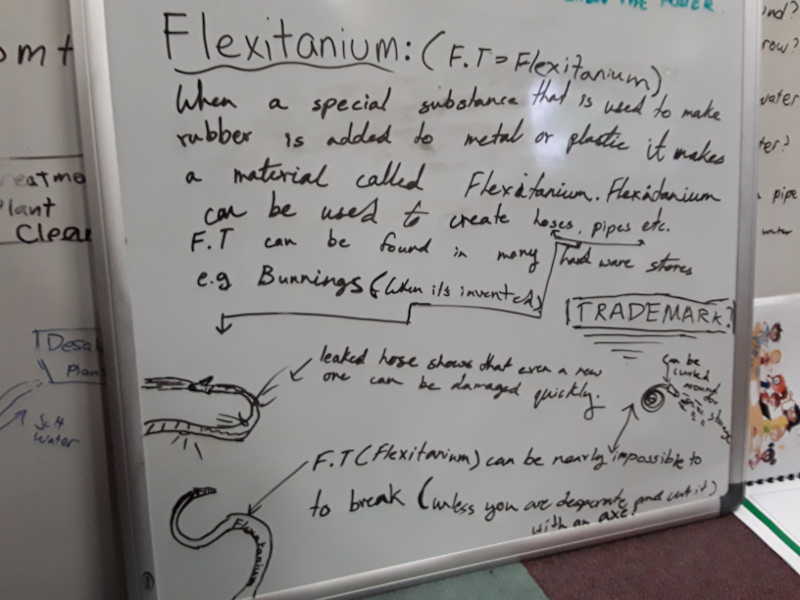 Flexitanium: (F.T = Flexitanium)
When a special substance that is used to make
rubber is added to metal or plastic it makes
a material called Flexitanium. Flexidanium
can be used to create hoses, pipes etc.
F.T can be found in many hard ware stores
e.g Bunnings (When it's invented)
TRADEMARK
leaked hose shows that even a new
one can be damaged quickly.
can be
curled
around
for
storage
F.T (Flexitanium) can be nearly impossible to
to break (unless you are desperate and cut it)
with an axe!
Flexitanium
omt
reatme
lant
Clea
Desa
Plan
Water
THE POWER
row?
water
ter?
pipe
water